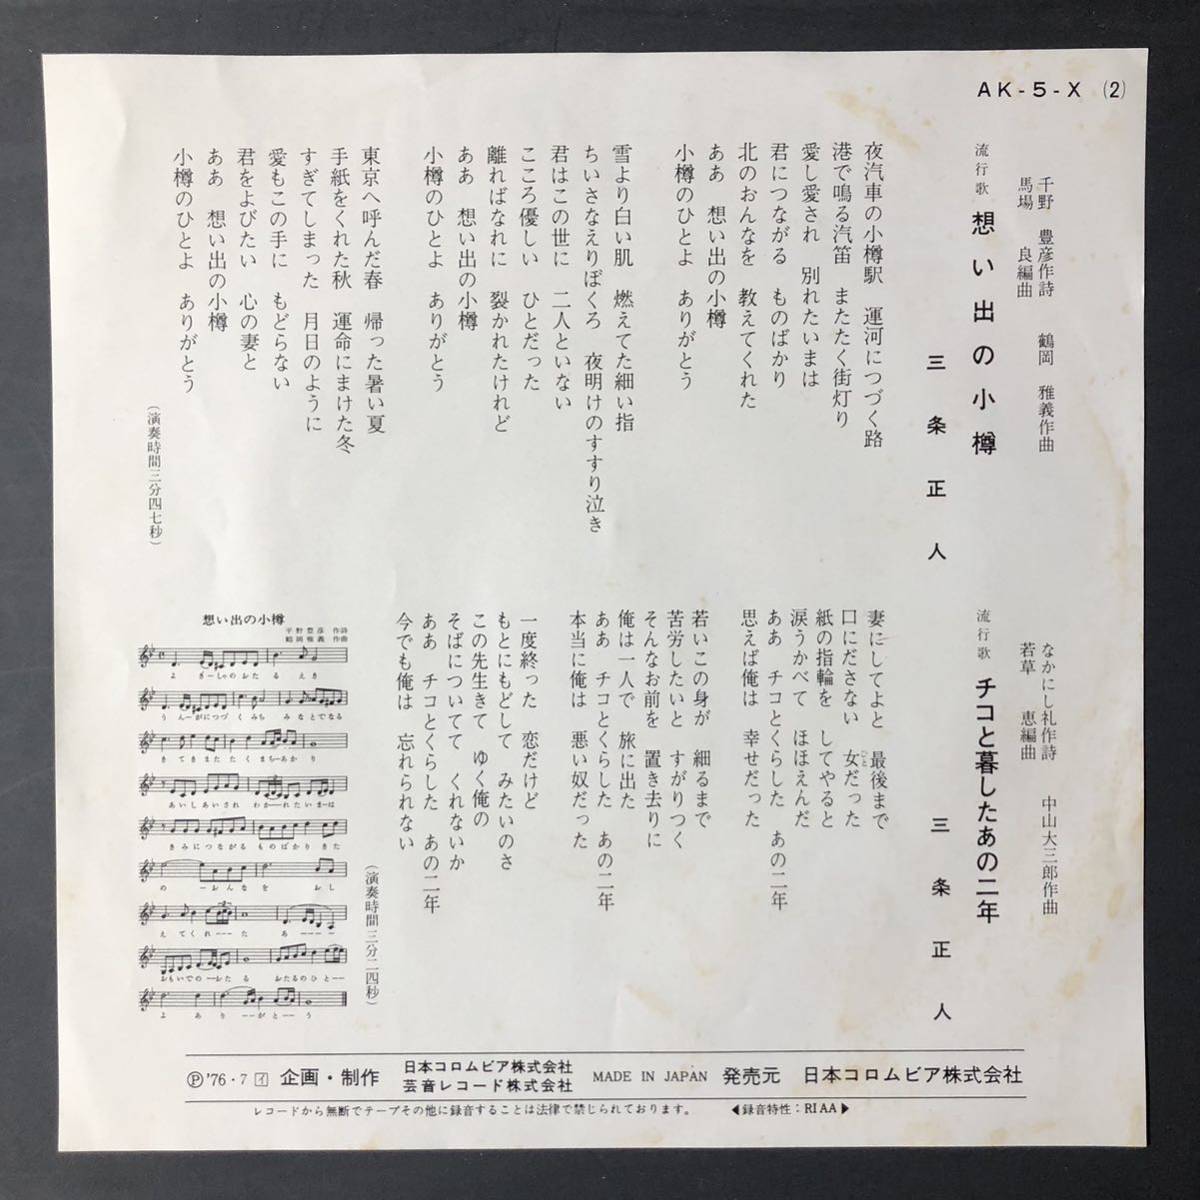 AK-5-X (2)
千野 豊彦作詩 鶴岡 雅義作曲
馬場 良編曲
流行歌 想い出の小樽
三条正人
夜汽車の小樽駅 運河につづく路
港で鳴る汽笛 またたく街灯り
愛し愛され 別れたいまは
君につながる ものばかり
北のおんなを 教えてくれた
ああ 想い出の小樽
小樽のひとよ ありがとう
雪より白い肌 燃えてた細い指
ちいさなえりぼくろ 夜明けのすすり泣き
君はこの世に 二人といない
こころ優しい ひとだった
離ればなれに 裂かれたけれど
ああ 想い出の小樽
小樽のひとよ ありがとう
東京へ呼んだ春 帰った暑い夏
手紙をくれた秋 運命にまけた冬
すぎてしまった 月日のように
愛もこの手に もどらない
君をよびたい 心の妻と
ああ 想い出の小樽
小樽のひとよ ありがとう
(演奏時間三分四七秒)
なかにし礼作詩 中山大三郎作曲
若草 恵編曲
流行歌 チコと暮したあの二年
三条正人
妻にしてよと 最後まで
口にださない 女だった
紙の指輪を してやると
涙うかべて ほほえんだ
ああ チコとくらした あの二年
思えば俺は 幸せだった
若いこの身が 細るまで
苦労したいと すがりつく
そんなお前を 置き去りに
俺は一人で 旅に出た
ああ チコとくらした あの二年
本当に俺は 悪い奴だった
一度終った 恋だけど
もとにもどして みたいのさ
この先生きて ゆく俺の
そばについてて くれないか
ああ チコとくらした あの二年
今でも俺は 忘れられない
(演奏時間三分二四秒)
想い出の小樽
千野豊彦 作詩
鶴岡雅義 作曲
よぎーしゃのおたるえき
うんーがにつづくみち みなとでなる
きてきまたたくまちーあかり
あいしあいされ わかーれたいまーは
きみにつながる ものばかりきた
のーおんなを おし
えてくれーーた あーーーー
おもいでのーおたる おたるのひとーー
よ ありーーがとーう
Ⓟ'76・7 イ 企画・制作 日本コロムビア株式会社
芸音レコード株式会社
MADE IN JAPAN 発売元 日本コロムビア株式会社
レコードから無断でテープその他に録音することは法律で禁じられております。 ◀録音特性:RIAA▶